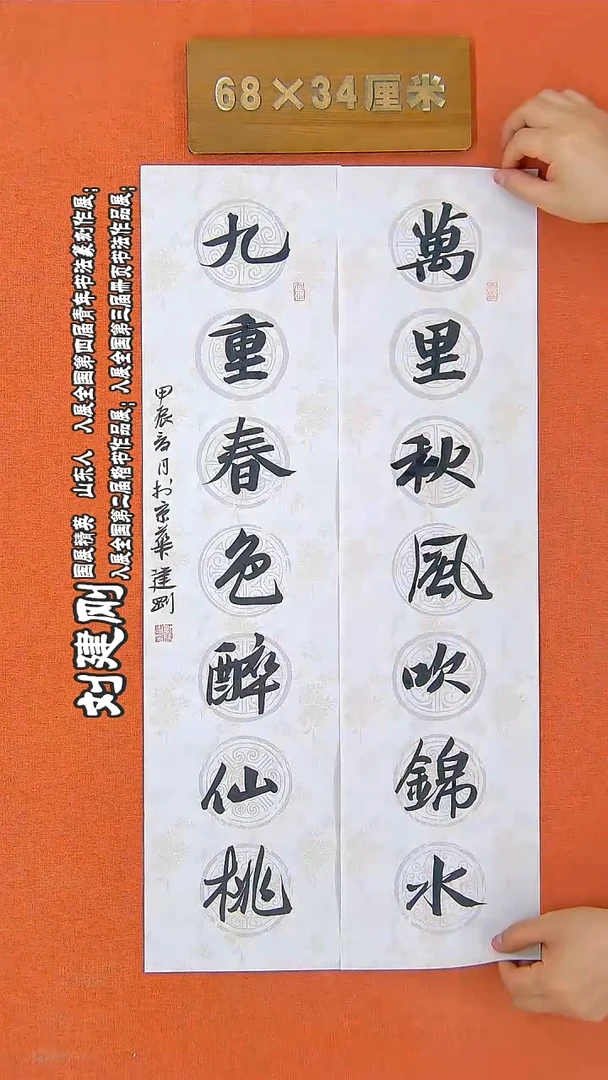 68×34厘米
萬里秋風吹錦水
九重春色醉仙桃
甲辰高月於京華建剛
刘建刚
国展精英 山东人 入展全国第四届青年书法篆刻作展;
入展全国第二届楷书作品展; 入展全国第三届册页书法作品展;